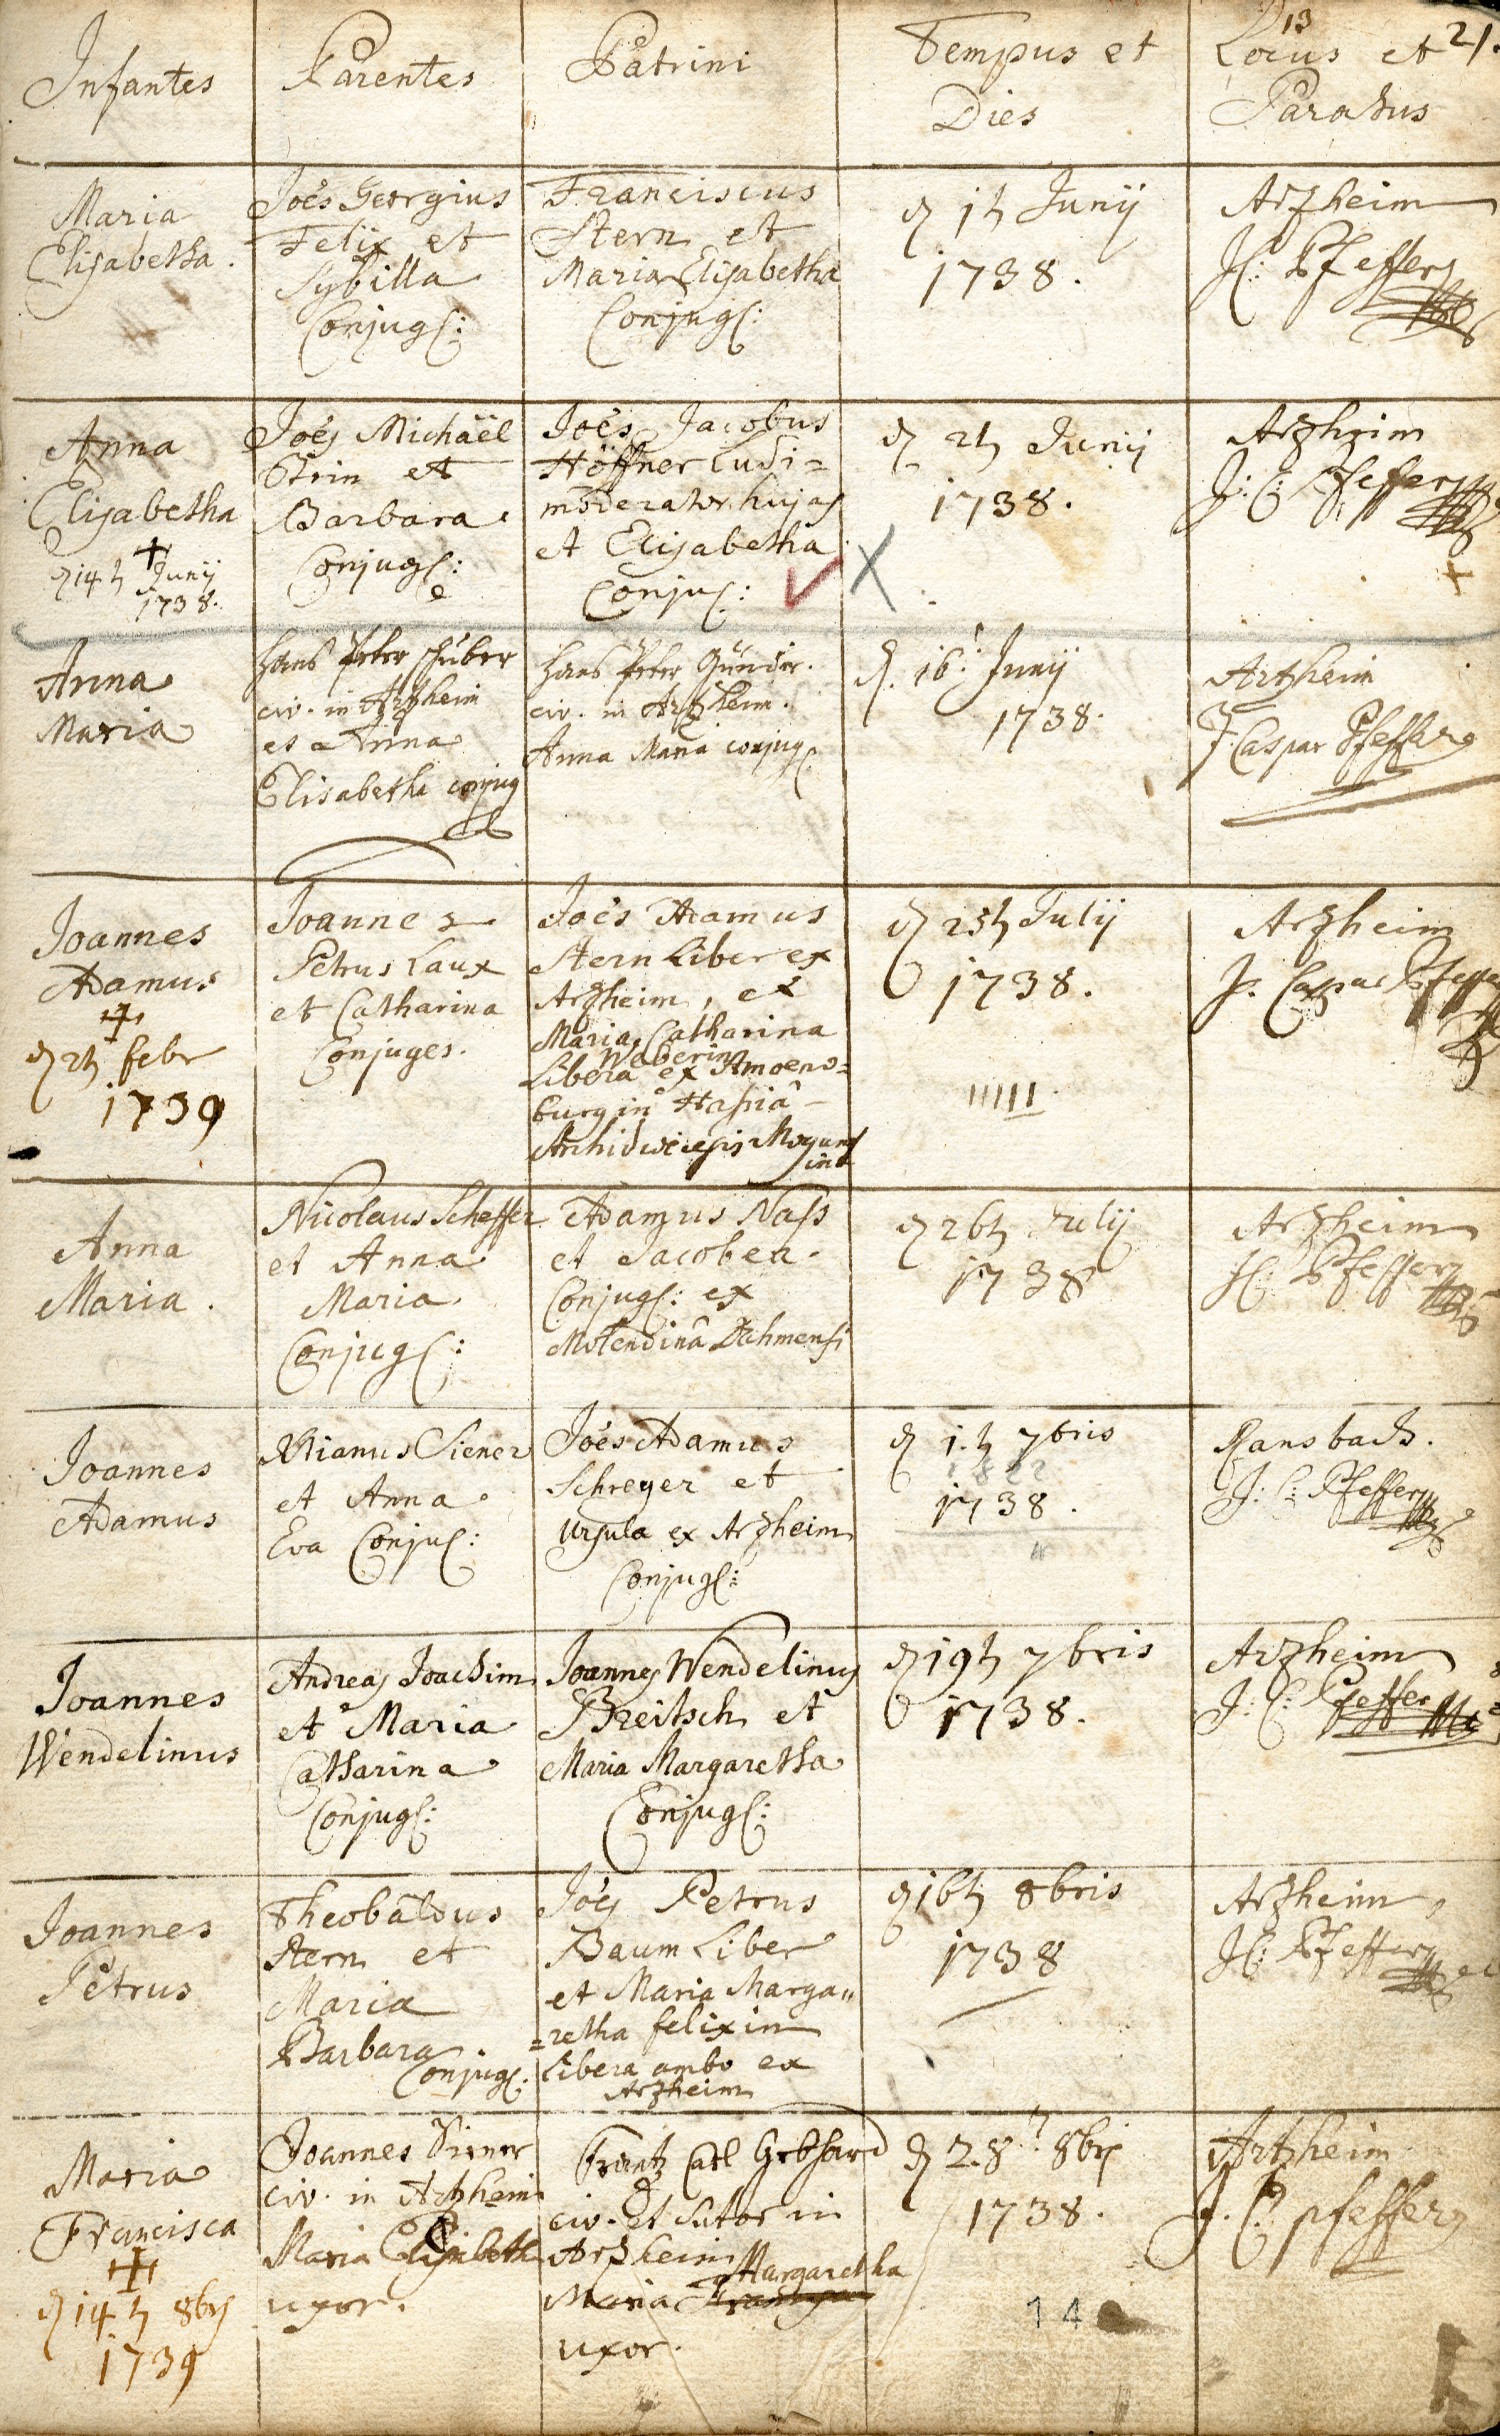 13
21.
Infantes
Parentes
Patrini
Tempus et
Dies
Locus et
Parochus
Maria
Elisabetha.
Joës Georgius
Felix et
Sybilla
Conjug:
Franciscus
Stern et
Maria Elisabetha
Conjug:
1738.
Junij
Arzheim
JC: Pfeffer
Anna
Elisabetha
+
14 Junij
1738.
Joës Michaël
et
Barbara
Conjug:
Joës Jacobus
Höffner Ludi=
moderator hujas
et Elisabetha
Conju:
2 Junij
1738.
Arzheim
J: C: Pfeffer
Anna
Maria
Hans Peter
civ. in Artzheim
et Anna
Elisabetha conjug
Hans Peter
civ. in Artzheim.
Anna Maria conjug
16 Junij
1738.
Artzheim
J. Caspar Pfeffer
Joannes
Adamus
+
2 febr
1739
Joannes
Petrus Laux
et Catharina
Conjuges.
Joës Adamus
Stern Liber ex
Arzheim, et
Maria Catharina
Weberin
Libera ex Amoeno=
burg in Hassiâ
25 Julij
1738.
Arzheim
J. Caspar Pfeffer
Anna
Maria.
Nicolaus Scheffer
et Anna
Maria
Conjug:
Adamus Nass
et Jacobea
Conjug: ex
Molendinâ
26 Julij
1738
Arzheim
JC: Pfeffer
Joannes
Adamus
Siener
et Anna
Eva Conju:
Joës Adamus
Schreyer et
Ursula ex Arzheim
Conjug:
1. 7bris
1738.
Ransbach.
J: C: Pfeffer
Joannes
Wendelinus
Andreas Joachim
et Maria
Catharina
Conjug:
Joannes Wendelinus
Breitsch et
Maria Margaretha
Conjug:
19 7bris
1738.
Arzheim
J: C: Pfeffer
Joannes
Petrus
Theobaldus
Stern et
Maria
Barbara
Conjug:
Joës Petrus
Baum Liber
et Maria Marga=
=retha felixin
Libera ambo ex
Arzheim
16 8bris
1738
Arzheim
JC: Pfeffer
Maria
Francisca
+
14 8bris
1739
Joannes Siener
civ. in Artzheim
Maria Elisabeth
uxor.
Frantz Carl Gebhard
civ. et Sutor in
Arzheim
Maria Margaretha
uxor.
28 8bris
1738.
Artzheim
J. C. Pfeffer
14